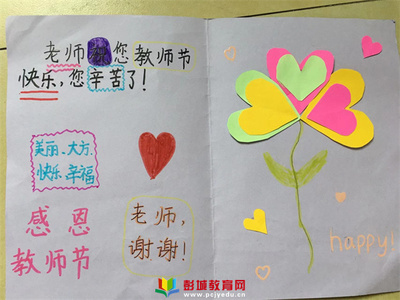 老师 您教师节
快乐,您辛苦了!
美丽、大方、
快乐、幸福
感恩
教师节
老师,
谢谢!
happy!
彭城教育网
www.pcjyedu.cn